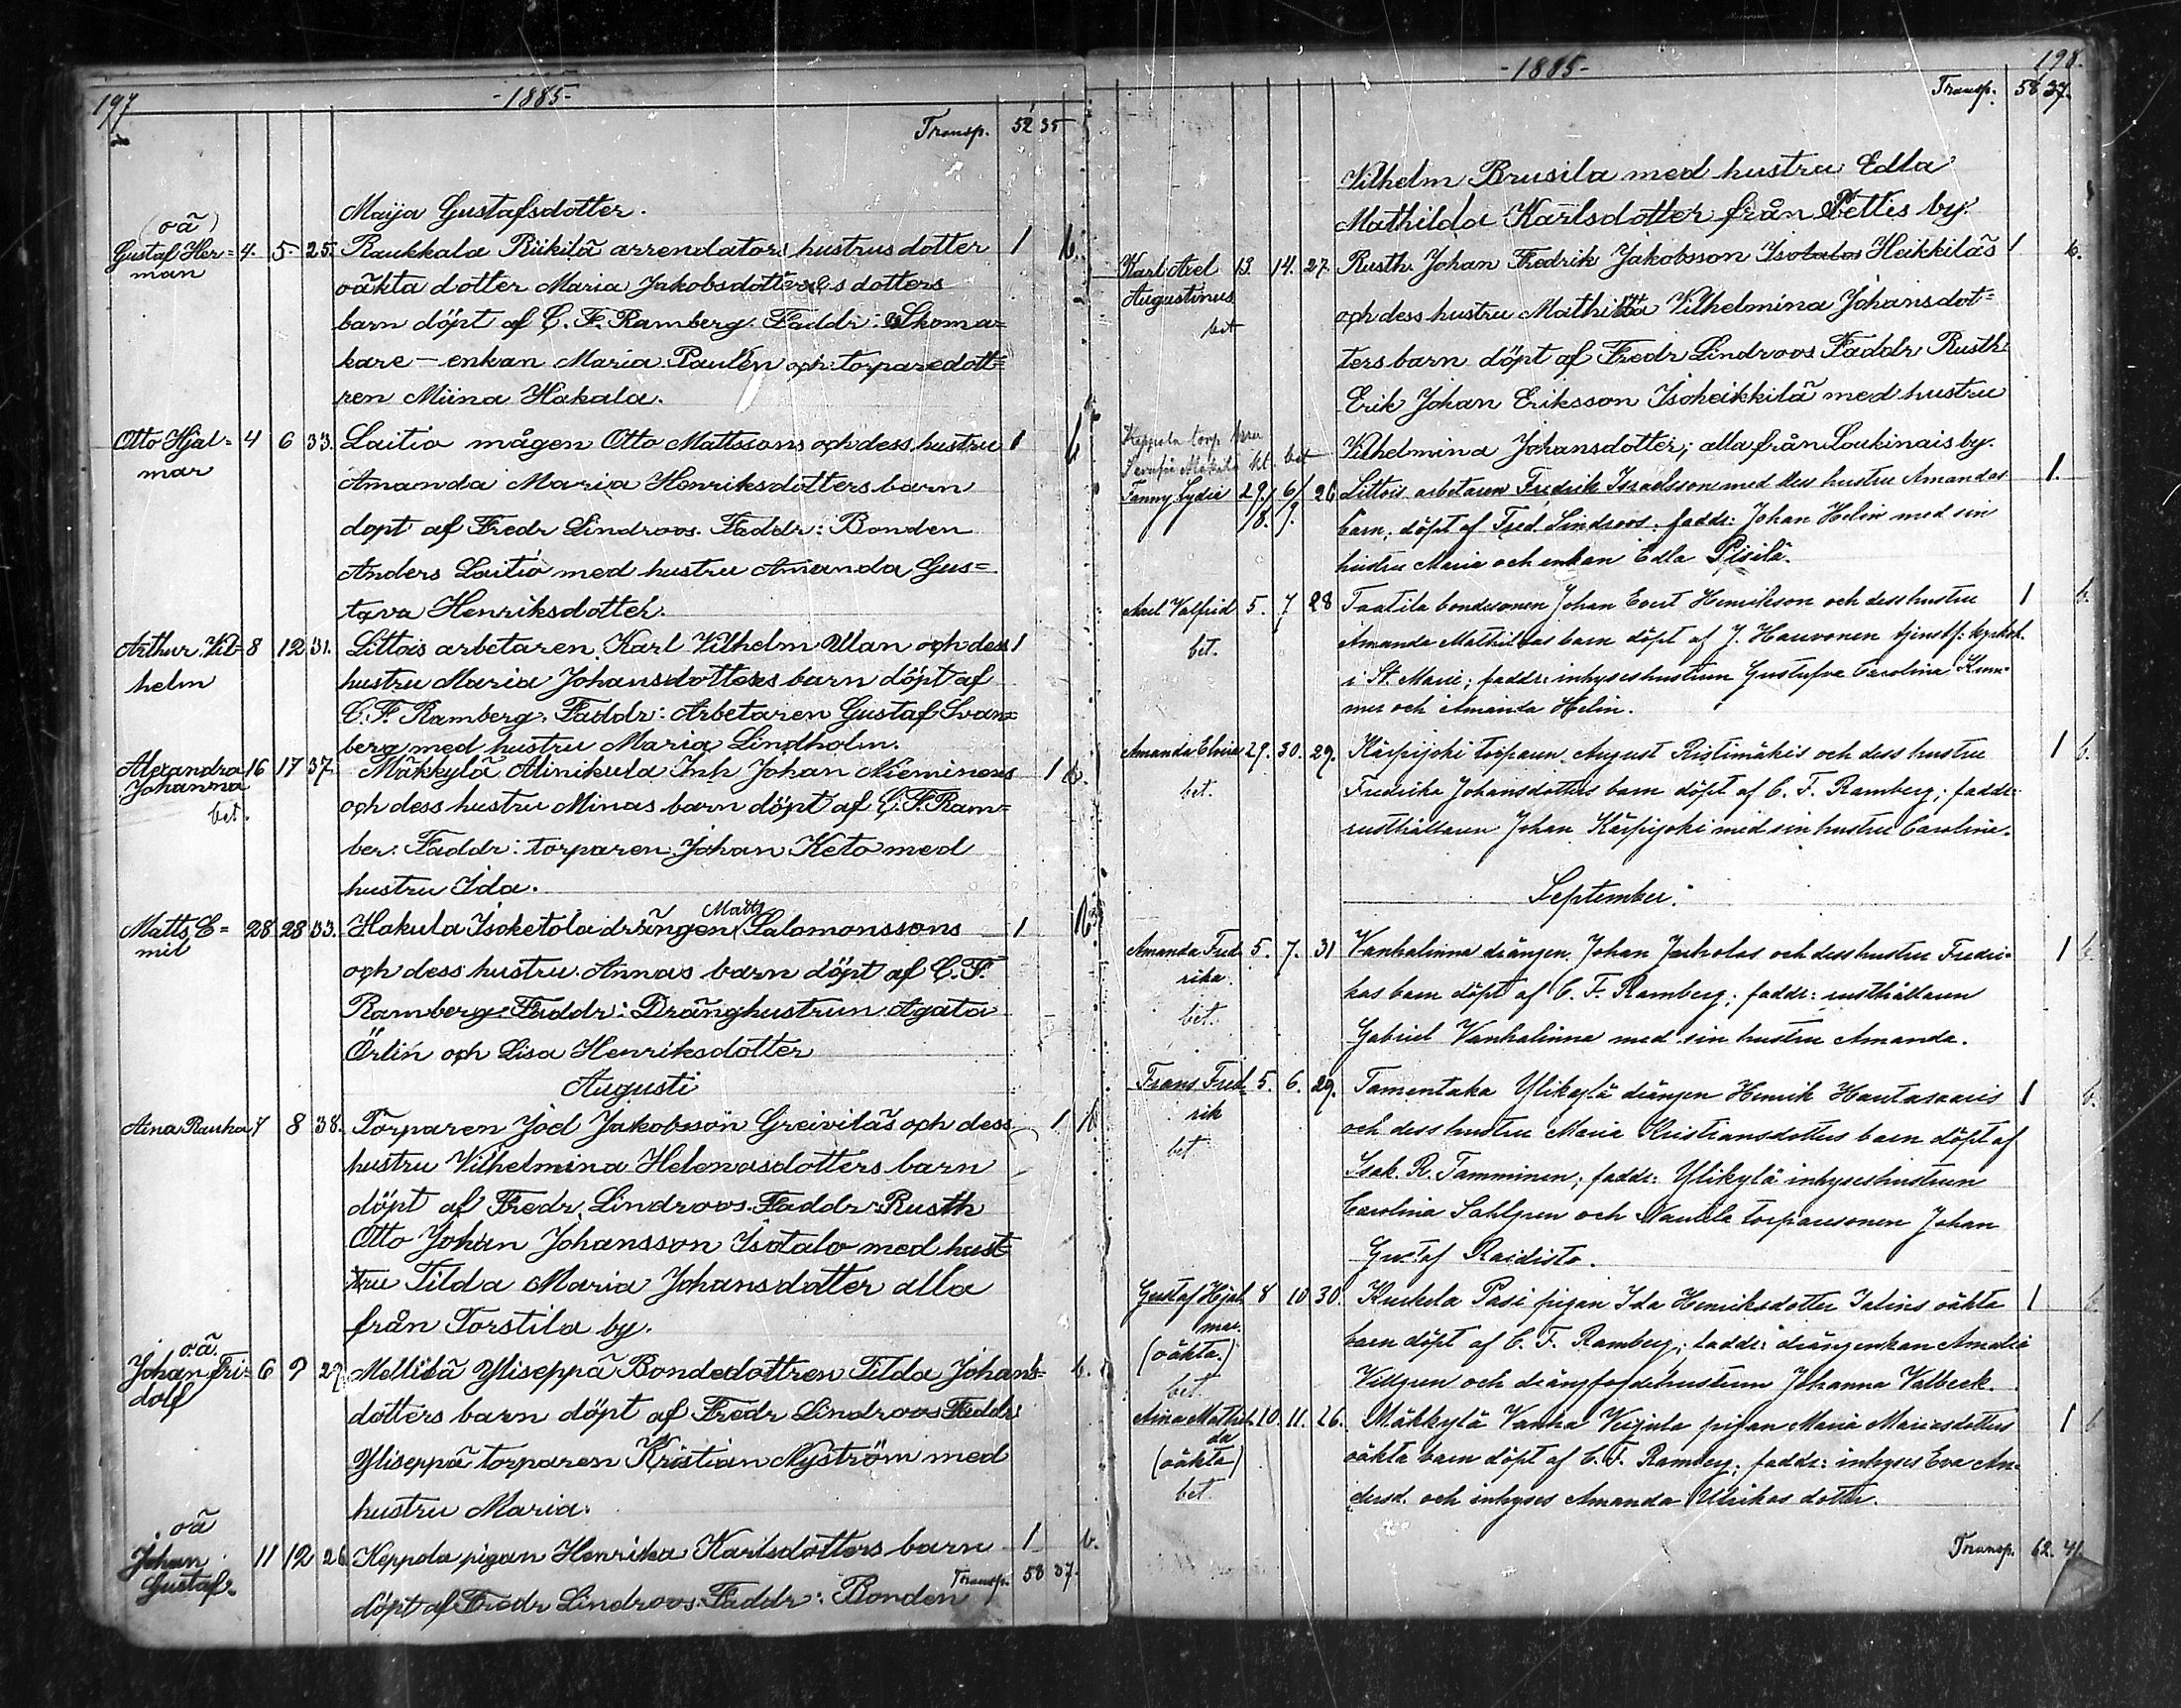 197
-1885-
Transp. 52 35
Maija Gustafsdotter.
(oä)
Gustaf Her= 4. 5. 25. Raukkala Riikilä arrendators hustrus dotter 1 b.
man
oäkta dotter Maria Jakobsdotters dotters
barn döpt af C. F. Ramberg. Faddr: Skoma=
kare-enkan Maria Paulén och torparedott=
ren Miina Hakala.
Otto Hjal= 4 6 33. Laitio mågen Otto Mattssons och dess hustru 1 b
mar
Amanda Maria Henriksdotters barn
döpt af Fredr Lindroos. Faddr: Bonden
Anders Laitio med hustru Amanda Gus=
tava Henriksdotter.
Arthur Vil= 8 12 31. Littois arbetaren Karl Vilhelm Ulan och dess 1
helm
hustru Maria Johansdotters barn döpt af
C. F. Ramberg. Faddr: Arbetaren Gustaf Svan=
berg med hustru Maria Lindholm.
Alexandra 16 17 37. Mäkkylä Alinikula Inh Johan Nieminens 1 b.
Johanna
bet.
och dess hustru Minas barn döpt af C. F. Ram=
ber. Faddr: torparen Johan Keto med
hustru Ida.
Matts E= 28 28 33. Hakula Isoketola drängen Matts Salomonssons 1 b.
mil
och dess hustru Annas barn döpt af C. F.
Ramberg Faddr: Dränghustrun Agata
Örlin och Lisa Henriksdotter
Augusti
Aina Rauha 7 8 38. Torparen Joel Jakobsson Greiviläs och dess 1 b
hustru Vilhelmina Helenasdotters barn
döpt af Fredr. Lindroos. Faddr: Rusth
Otto Johan Johansson Isotalo med hust
tru Tilda Maria Johansdotter alla
från Torstila by.
oä.
Johan Fri= 6 9 27 Mellilä Yliseppä Bondedottren Tilda Johans= b.
dolf
dotters barn döpt af Fredr Lindroos Faddr
Yliseppä torparen Kristian Nyström med
hustru Maria.
oä
Johan 11 12 26 Keppola pigan Henrika Karlsdotters barn 1 b.
Gustaf.
Transp. 58 37.
döpt af Fredr Lindroos. Faddr: Bonden
-1885-
198.
Transp. 58 37.
Vilhelm Brusila med hustru Edla
Mathilda Karlsdotter från Pettis by.
Karl Axel 13. 14. 27. Rusth. Johan Fredrik Jakobsson Isotalos Heikkiläs 1 b.
Augustinus
bet
och dess hustru Mathilda Vilhelmina Johansdot=
ters barn döpt af Fredr Lindroos Faddr Rusth:
Erik Johan Eriksson Isoheikkilä med hustru
Vilhelmina Johansdotter; alla från Loukinais by.
Keppola torp
bet
Fanny Lydia 29./8. 6/9. 26 Littois arbetaren Fredrik Israelsson med dess hustru Amandas 1.
barn, döpt af Fred. Lindroos; faddr: Johan Helin med sin
hustru Maria och enkan Edla Piisilä.
Axel Valfrid 5. 7 28 Taatila bondesonen Johan Evert Henrikson och dess hustru 1 b.
bet.
Amanda Mathildas barn döpt af J. Hauvonen tjenstf: kyrkoh.
i St. Marie; faddr: inhyseshustrun Gustafva Carolina Kum=
mer och Amanda Helin.
Amanda Elvira 29. 30. 29. Kärpijoki torparen August Ristimäkis och dess hustru 1 b.
bet.
Fredrika Johansdotters barn döpt af C. F. Ramberg; faddr:
rusthållaren Johan Kärpijoki med sin hustru Carolina.
September.
Amanda Fred 5. 7. 31 Vanhalinna drängen Johan Jaeholas och dess hustru Fredri= 1 b
rika.
bet.
kas barn döpt af C. F. Ramberg; faddr: rusthållaren
Gabriel Vanhalinna med sin hustru Amanda.
Frans Fred 5. 6. 29. Tamentaka Ylikylä drängen Henrik Hautasaaris 1 b.
rik
bet
och dess hustru Maria Kristiansdotters barn döpt af
Isak. R. Tamminen; faddr: Ylikylä inhyseshustrun
Carolina Sahlgren och Nautela torparesonen Johan
Gustaf Raidisto.
Gustaf Hjal 8 10 30. Kurkela Pasi pigan Ida Henriksdotter Jalins oäkta 1 b
mar.
(oäkta.)
bet.
barn döpt af C. F. Ramberg; faddr: drängenkan Amalia
Villgren och drängfogdehustrun Johanna Valbeck.
Aina Mathil 10. 11. 26. Mäkkylä Vanha Veijula pigan Maria Mariasdotters 1 b
da
(oäkta)
bet.
oäkta barn döpt af C. F. Ramberg; faddr: inhyses Eva An=
dersd. och inhyses Amanda Ulrikas dotter.
Transp. 62. 41